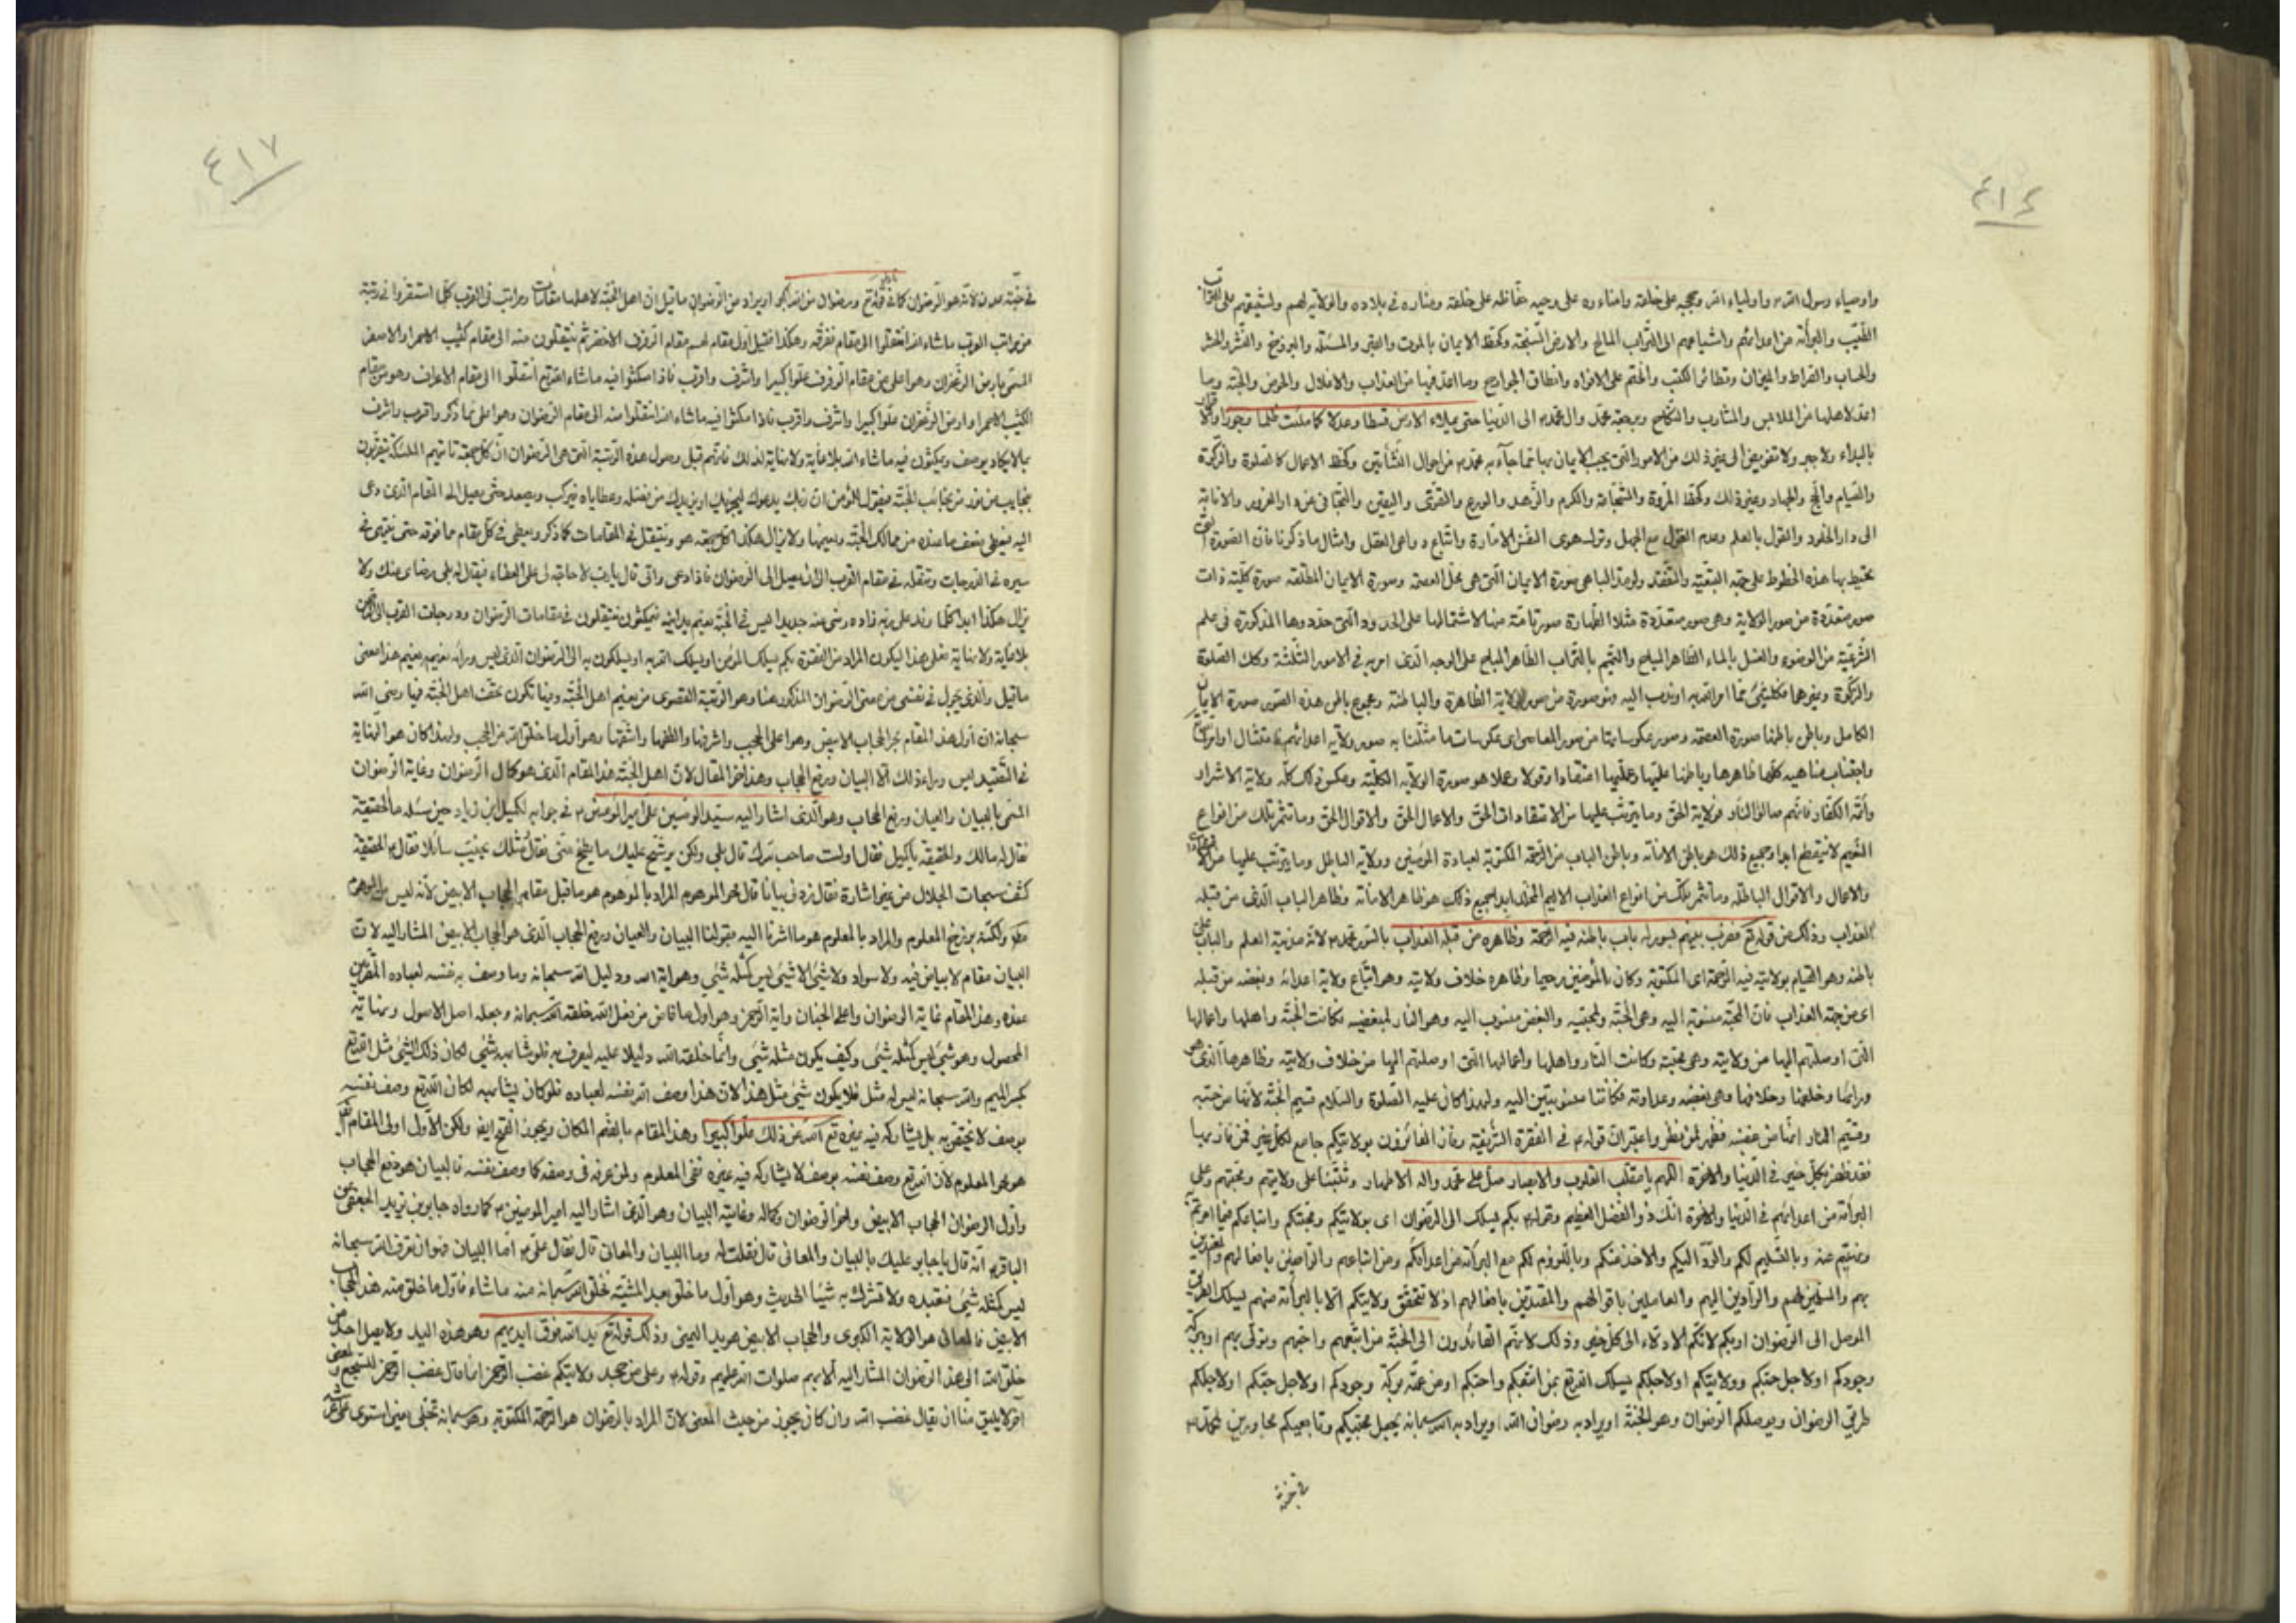 ٤١٤
واوصياء رسول الله واولياء الله وحججه على خلقه وامناءه على وحيه حفاظه على خلقه ومناره فى بلاده والولاية لهم ولشيعتهم على التراب
الطيب والبرائة من اعدائهم واشياعهم الى التراب المالح والارض السبخة وكحفظ الايمان بالموت والقبر والمسئلة والبرزخ والنشر والحشر
والحساب والصراط والميزان وتطائر الكتب والختم على الافواه وانطاق الجوارح وما اعد فيها من العذاب والاغلال والحوض والجنة وما
اعد لاهلها من الملابس والمشارب والنكاح وبرجعة محمد وال محمد الى الدنيا حتى يملاء الارض قسطا وعدلا كما ملئت ظلما وجورا
بالبداء ولا جبر ولا تفويض الى غير ذلك من الامور التى يجب الايمان بها مما جاء به محمد من احوال النشأتين وكحفظ الاعمال كالصلوة والزكوة
والصيام والحج والجهاد وغير ذلك وكحفظ المروة والشجاعة والكرم والزهد والورع والتقوى واليقين والتجافى عن دار الغرور والانابة
الى دار الخلود والقول بالعلم وعدم القول مع الجهل وترك هوى النفس الامارة واتباع دواعى العقل وامثال ما ذكرنا فان الصورة التى
تحيط بها هذه الخطوط على صورة الايمان التى هى محل العصمة وصورة الايمان المطلقة صورة كلية ذات
صور متعددة من صور الولاية وهى صور متعددة مثلا الطهارة صورة تامة منها لاشتمالها على الحدود التى حددوها المذكورة فى علم
الشريعة من الوضوء والغسل بالماء الطاهر المباح والتيمم بالتراب الطاهر المباح على الوجه الذى امر به فى الامور الثلثة وكك الصلوة
والزكوة وغيرهما فكل شئ مما امر الله به او ندب اليه فهو صورة من صور الولاية الظاهرة والباطنة ومجموع باطن هذه الصور صورة الايمان
الكامل وباطن باطنها صورة العصمة وصور عكوساتها من صور المعاصى اى عكوسات ما مثلنا به صور ولاية اعدائهم فامتثال اوامر الله
واجتناب مناهيه كلها ظاهرها وباطنها عليها وعليها اعتقادا وقولا وعملا هو صورة الولاية الكلية وعكس ذلك كله ولاية الاشرار
وائمة الكفار فانهم صالوا النار فولاية الحق وما يترتب عليها من الاعتقادات الحق والاعمال الحق والاقوال الحق وما تثمر تلك من انواع
النعيم لا ينقطع ابدا وجميع ذلك هو باطن الامانة وباطن الباب من الرحمة المكتوبة لعبادة المؤمنين وولاية الباطل وما يترتب عليها من
والاعمال والاقوال الباطلة وما تثمر تلك من انواع العذاب الاليم المخلد ابدا جميع ذلك هو ظاهر الامانة وظاهر الباب الذى من قبله
العذاب وذلك من قوله تع فضرب بينهم بسور له باب باطنه فيه الرحمة وظاهره من قبله العذاب بالسور محمد لانه مدينة العلم والباب على
باطنه وهو القيام بولايته فيه الرحمة اى المكتوبة وكان بالمؤمنين رحيما وظاهره خلاف ولايته وهو اتباع ولاية اعدائه وبغضه من قبله
اى من جهته العذاب فان المحبة منسوبة اليه وهى الجنة ولمحبيه والبغض منسوب اليه وهو النار لمبغضيه فكانت الجنة واهلها واعمالها
التى اوصلتهم اليها من ولايته وهى محبته وكانت النار واهلها واعمالها التى اوصلتهم اليها من خلاف ولايته وظاهرها الذى هو
ورائها وخلفها وخلافها وهى بغضه وعداوته فكانتا منسوبتين اليه ولهذا كان عليه الصلوة والسلام قسيم الجنة لانها من حبه
وقسيم النار انها من بغضه فظهر لمن نظر واعتبر ان قوله فى الفقرة الشريفة وفاز الفائزون بولايتكم جامع لكل خير فمن فاز بها
فقد ظفر بكل خير فى الدنيا والاخرة اللهم يا مقلب القلوب والابصار صل على محمد واله الاطهار وثبتنا على ولايتهم ومحبتهم وعلى
البرائة من اعدائهم فى الدنيا والاخرة انك ذو الفضل العظيم وقوله بكم يسلك الى الرضوان اى بولايتكم ومحبتكم واتباعكم فيما امرتم به
ونهيتم عنه وبالتسليم لكم والرد اليكم والاخذ عنكم وباللزوم لكم مع البرائة من اعدائكم ومن اتباعهم والراضين بافعالهم
بهم والمسلمين لهم والرادين اليهم والعاملين باقوالهم والمقتدين بافعالهم اذ لا تتحقق ولايتكم الا بالبرائة منهم ليسلك الطريق
الموصل الى الرضوان او بكم لانكم الادلاء الى كل خير وذلك لانهم القائدون الى الجنة من اتبعهم واحبهم وتولى بهم او ببركة
وجودكم او لاجل حبكم وولايتكم او لاجلكم يسلك الله تع بمن اتبعكم واحبكم او من عمته بركة وجودكم او لاجل حبكم او لاجلكم
طريق الرضوان ويوصلكم الرضوان وهو الجنة او يراد به رضوان الله او يراد به الله سبحانه يجعل محبيكم وتابعيكم مجاورين لمحمد
فى جنة
٤١٧
فى جنة عدن لانه هو الرضوان كما فى قوله تع ورضوان من الله اكبر او يراد من الرضوان ما قيل ان اهل الجنة لاهلها مقامات ومراتب فى القرب كلما استقروا فى رتبة
من مراتب القرب ما شاء الله انتقلوا الى مقام فوقه وهكذا فقيل اول مقام لهم مقام الرفرف الاخضر ثم ينتقلون منه الى مقام كثيب الاحمر والاصفر
المسمى بارض الزعفران وهو اعلى من مقام الرفرف علوا كبيرا واشرف واقرب فاذا مكثوا فيه ما شاء الله تع انتقلوا الى مقام الاعراف وهو من مقام
الكثيب الاحمر او ارض الزعفران علوا كبيرا واشرف واقرب فاذا مكثوا فيه ما شاء الله انتقلوا منه الى مقام الرضوان وهو اعلى مما ذكر واقرب واشرف
بما لا يكاد يوصف ويمكثون فيه ما شاء الله بلا غاية ولا نهاية لذلك فانهم قبل وصول هذه الرتبة التى هى الرضوان ان كل جمعة تاتيهم الملئكة
بنجايب من نور من نجائب الجنة فيقول المؤمن ان ربك يدعوك ليحبيك او يزيدك من فضله وعطاياه فيركب ويصعد حتى يصل الى المقام الذى دعى
اليه فيعطى بضعف ما عنده من ممالك الجنة ونعيمها ولا يزال هكذا كل جمعة هو وينتقل فى المقامات كما ذكر ويعطى فى كل مقام مما فوقه حتى ينتهى فى
سيره فى الدرجات وتنقله فى مقام القرب الى ان يصل الى الرضوان فاذا دعى واتى قال يا رب لا حاجة لى على العطاء فيقال له بلى رضاى عنك ولا
يزال هكذا ابدا كلما وفد على ربه زاده رضى عنه جديدا ليس فى الجنة نعيم يدانيه فيمكثون ينتقلون فى مقامات الرضوان ودرجات القرب الى الرحمن
بلا غاية ولا نهاية فعلى هذا ليكون المراد من الفقرة بكم يسلك المؤمن او يسلك الله به او يسلكون به الى الرضوان الذى ليس ورائه نعيم هذا معنى
ما قيل والذى يجول فى نفسى من معنى الرضوان المذكور هنا وهو الرتبة القصوى من نعيم اهل الجنة وفيما تكون تحف اهل الجنة فيها رضى الله
سبحانه ان اول هذا المقام هو الحجاب الابيض وهو اعلى الحجب واشرفها والطفها واشفها وهو اول ما خلق الله من الحجب ولهذا كان هو النهاية
فى التقييد ليس وراء ذلك الا البيان ورفع الحجاب وهذا اخر المقال لان اهل الجنة هذا المقام الذى هو كمال الرضوان وغاية الرضوان
المسمى بالبيان والعيان ورفع الحجاب وهو الذى اشار اليه سيد الوصيين على امير المؤمنين فى جوابه لكميل ابن زياد حين سئله ما الحقيقة
فقال له مالك والحقيقة يا كميل فقال اولست صاحب سرك قال بلى ولكن يرشح عليك ما يطفح منى فقال او مثلك يخيب سائلا فقال الحقيقة
كشف سبحات الجلال من غير اشارة فقال زدنى بيانا قال محو الموهوم المراد بالموهوم هو ما قبل مقام الحجاب الابيض لانه ليس بالموهوم
ولكنه برزخ المعلوم والمراد بالمعلوم هو ما اشرنا اليه بقولنا البيان والعيان ورفع الحجاب الذى هو الحجاب الابيض المشار اليه لان
البيان مقام لا بياض فيه ولا سواد ولا شئ الا شئ ليس كمثله شئ وهو اية الله ودليل الله سبحانه وما وصف به نفسه لعباده المقربين
عنده وهذا المقام غاية الرضوان واعلى الجنان واية الرحمن وهو اول ما فاض من فعل الله خلقه الله سبحانه وجعله اصل الاصول ونهاية
المحصول وهو شئ ليس كمثله شئ وكيف يكون مثله شئ وانما خلقه الله دليلا عليه ليعرف به فلو شابهه شئ لكان ذلك الشئ مثل الله تع
بكسر الميم والله سبحانه ليس له مثل فلا يكون شئ مثل هذا لان هذا وصف الله نفسه لعباده فلو كان يشابهه لكان الله تع وصف نفسه
بوصف لا يختص به بل يشاركه فيه غيره تع الله عن ذلك علوا كبيرا وهذا المقام بالضم المكان ويجوز الفتح ايضا ولكن الاول اولى المقام
هو محو المعلوم لان الله تع وصف نفسه بوصف لا يشاركه فيه غيره ففى المعلوم ولمن عرفه فى وصفه كما وصف نفسه فالبيان هو رفع الحجاب
واول الرضوان الحجاب الابيض واخر الرضوان وكماله وغايته البيان وهو الذى اشار اليه امير المؤمنين كما رواه جابر بن يزيد الجعفى عن
الباقر انه قال يا جابر عليك بالبيان والمعانى قال فقلت له وما البيان والمعانى قال فقال على اما البيان فهو ان تعرف الله سبحانه
ليس كمثله شئ فتعبده ولا تشرك به شيئا الحديث وهو اول ما خلق بعد المشية فخلق الله سبحانه منه ما شاء فاول ما خلق منه هذا الحجاب
الابيض فالمعانى هو الولاية الكبرى والحجاب الابيض هو يد اليمنى وذلك قوله تع يد الله فوق ايديهم وهو هذه اليد ولا يصل احد من
خلق الله الى هذا الرضوان المشار اليه الا بهم صلوات الله عليهم وقوله وعلى من جحد ولايتكم غضب الرحمن انما قال غضب الرحمن للسجع
لا يليق منا ان يقال غضب الله وان كان يجوز من حيث المعنى لان المراد بالرضوان هو الرحمة المكتوبة وهو سبحانه تجلى حين استوى على عرشه